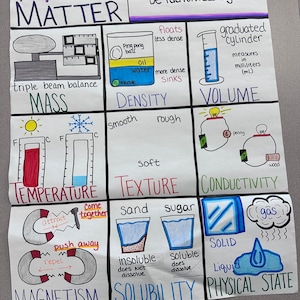 MATTER
triple beam balance
MASS
floats
less dense
ping pong
ball
oil
water
more dense
sinks
DENSITY
graduated
cylinder
measures
in
milliliters
(mL)
VOLUME
F C
F C
TEMPERATURE
smooth rough
soft
TEXTURE
CONDUCTIVITY
come
together
push away
repel
MAGNETISM
sand sugar
insoluble
does not
dissolve
soluble
does
dissolve
SOLUBILITY
gas
SOLID
Liquid
PHYSICAL STATE